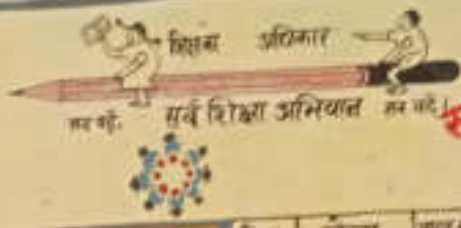 शिक्षा अधिकार
सब पढ़ें. सर्व शिक्षा अभियान सब बढ़ें।